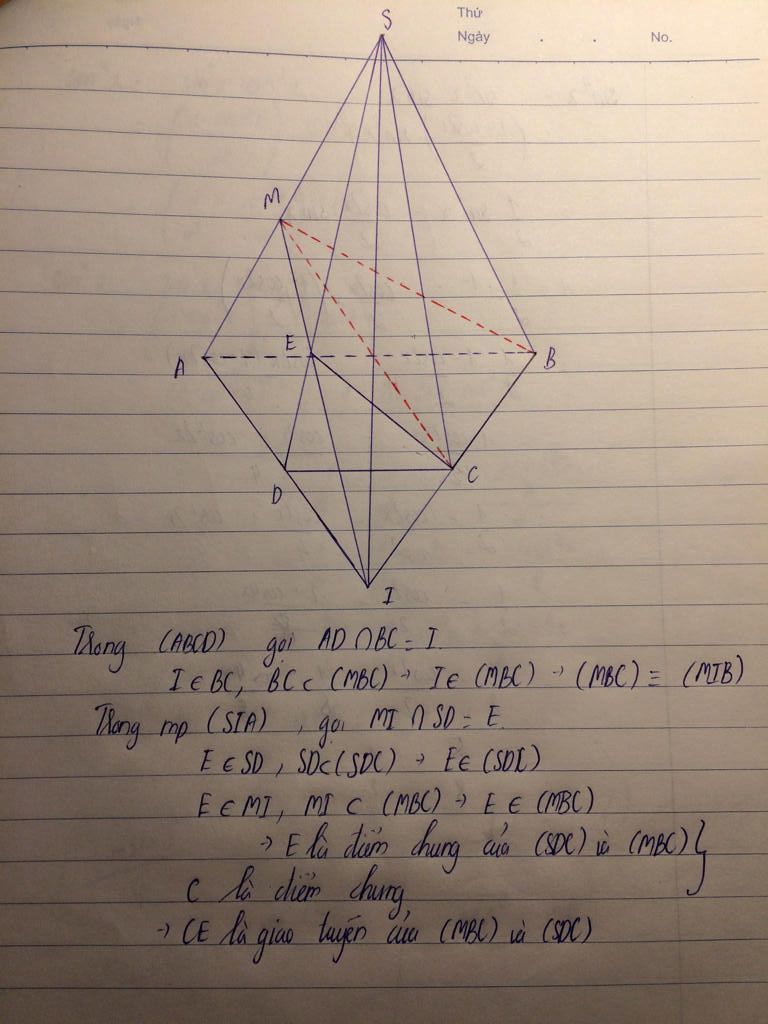 Thứ
Ngày . . No.
S
M
A
E
B
D
C
I
Trong (ABCD) gọi AD ∩ BC = I.
I ∈ BC, BC ⊂ (MBC) → I ∈ (MBC) → (MBC) ≡ (MIB)
Trong mp (SIA), gọi MI ∩ SD = E.
E ∈ SD, SD ⊂ (SDC) → E ∈ (SDC)
E ∈ MI, MI ⊂ (MBC) → E ∈ (MBC)
→ E là điểm chung của (SDC) và (MBC) }
C là điểm chung
→ CE là giao tuyến của (MBC) và (SDC)